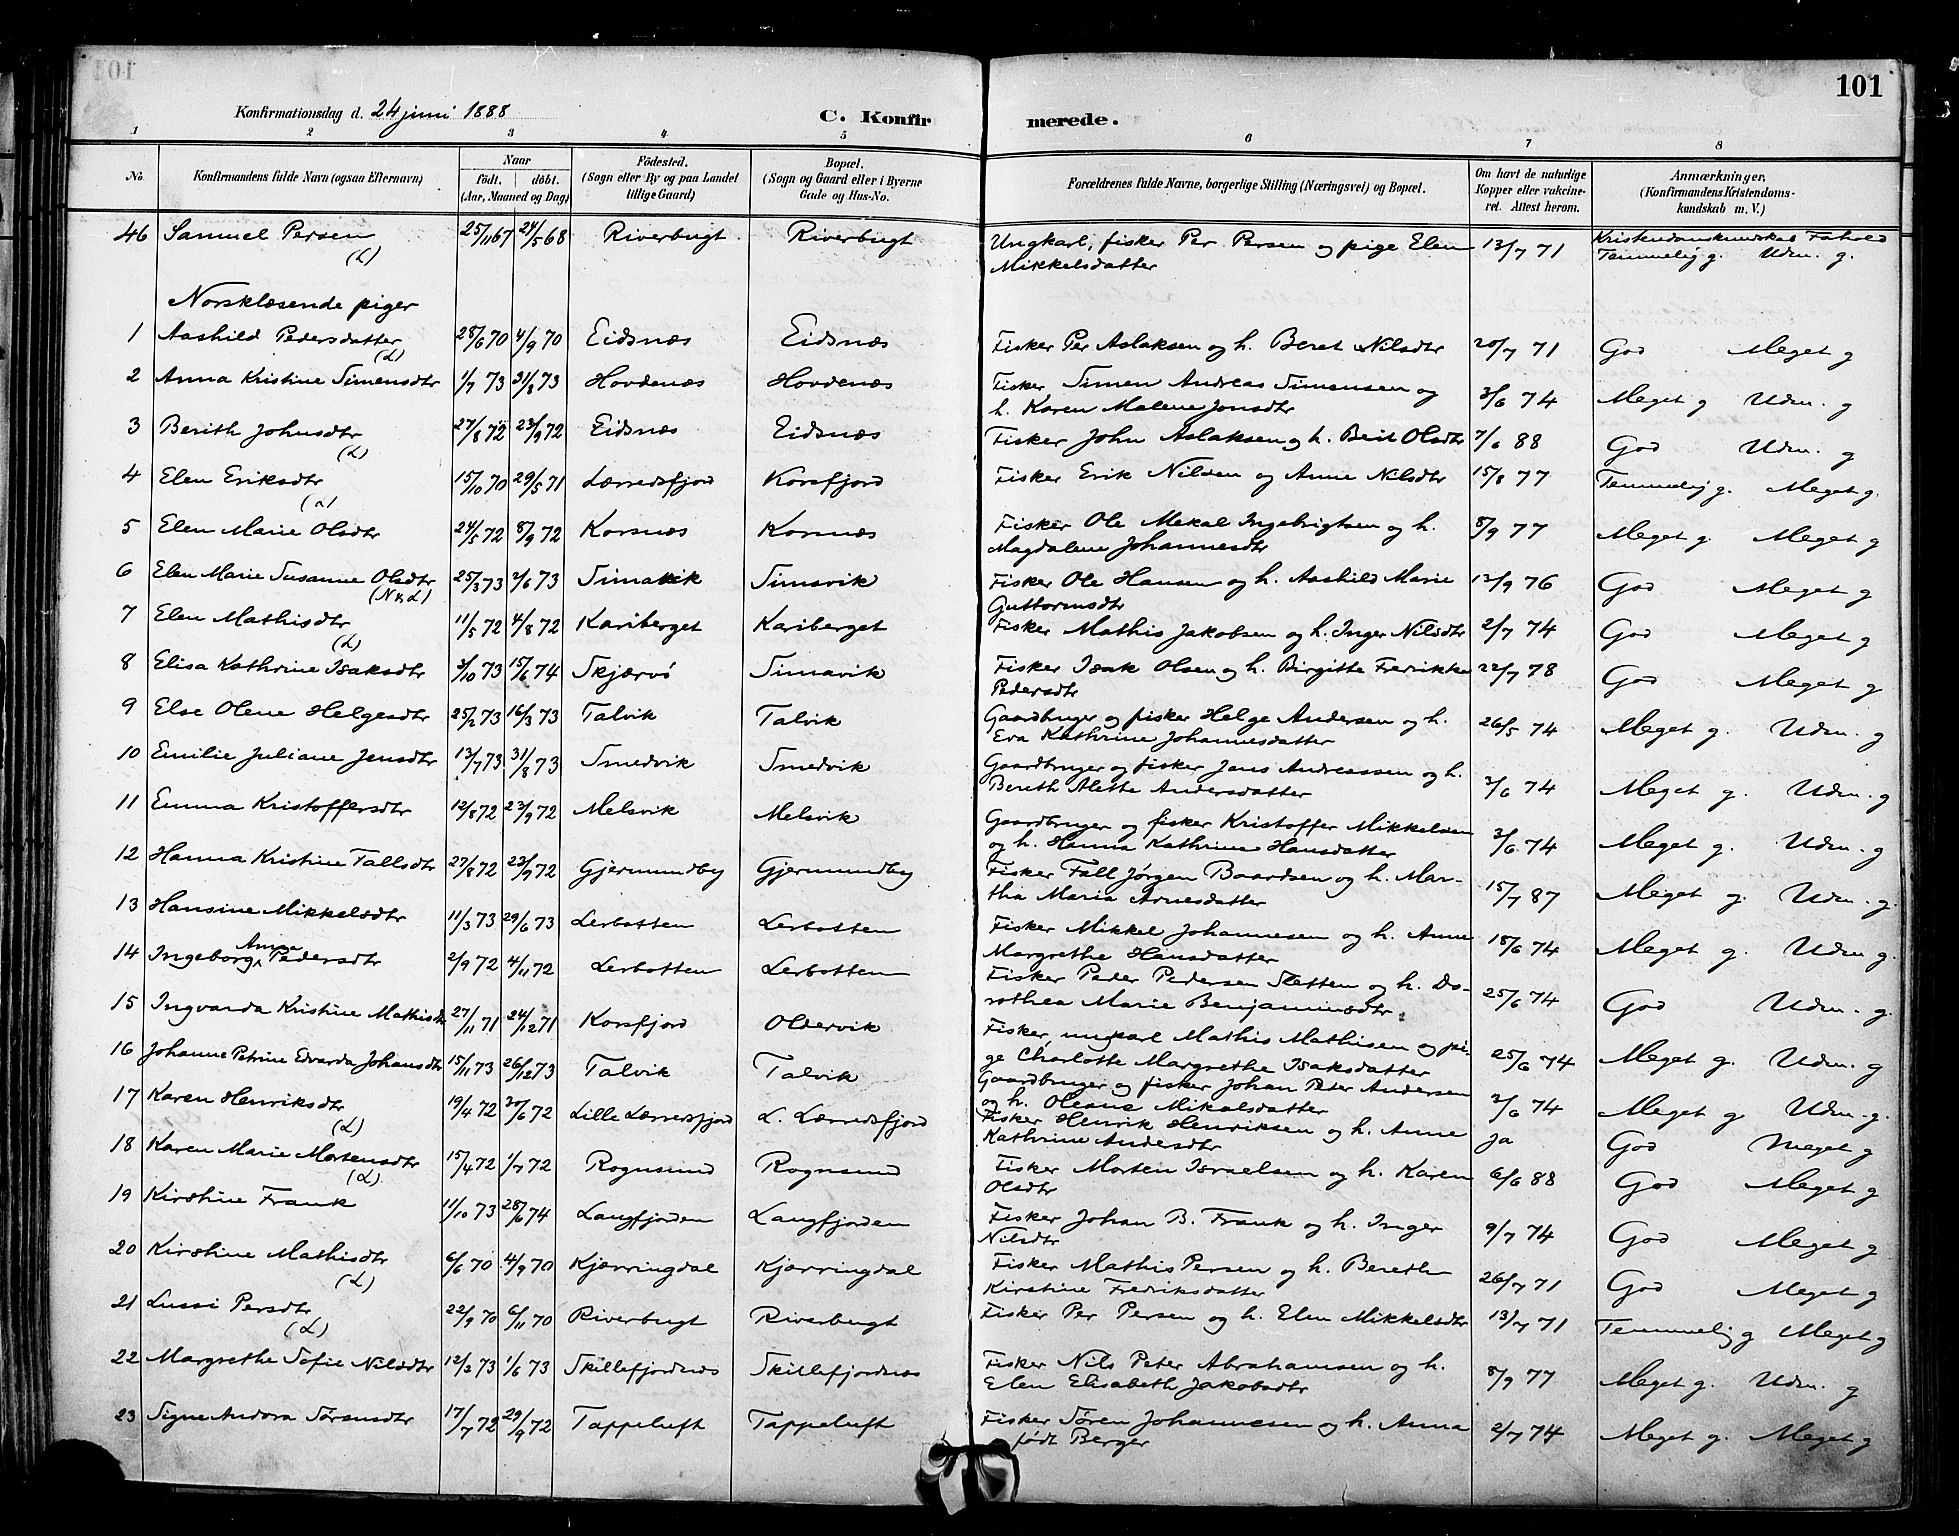 101
Konfirmationsdag d. 24 juni 1888
C. Konfirmerede.
1 2 3 4 5 6 7 8
No. | Konfirmandens fulde Navn (ogsaa Efternavn) | Naar födt. | döbt. (Aar, Maaned og Dag) | Födested. (Sogn eller By og paa Landet tillige Gaard) | Bopæl. (Sogn og Gaard eller i Byerne Gade og Hus-No. | Forældrenes fulde Navne, borgerlige Stilling (Næringsvei) og Bopæl. | Om havt de naturlige Kopper eller vakcineret. Attest herom. | Anmærkninger, (Konfirmandens Kristendomskundskab m. V.)
46 Samuel Persen (L) 25/11 67 24/5 68 Riverbugt Riverbugt Ungkarl, fisker Per Persen og pige Elen Mikkelsdatter 13/7 71 Kristendomskundskab Forhold Temmelig g. Udm. g.
Norsklæsende piger
1 Aashild Pedersdatter (L) 28/6 70 4/9 70 Eidsnæs Eidsnæs Fisker Per Aslaksen og h. Beret Nilsdtr 20/7 71 God Meget g
2 Anna Kristine Simensdtr 1/7 73 31/8 73 Hovdenæs Hovdenæs Fisker Simen Andreas Simensen og h. Karen Malene Jonsdtr 3/6 74 Meget g Udm. g
3 Berith Johnsdtr (L) 27/8 72 23/9 72 Eidsnæs Eidsnæs Fisker John Aslaksen og h. Berit Olsdtr 7/6 88 God Udm. g
4 Elen Eriksdtr (L) 15/10 70 29/5 71 Lærredsfjord Korsfjord Fisker Erik Nilsen og Anne Nilsdtr 15/8 77 Temmelig g. Meget g.
5 Elen Marie Olsdtr 24/5 72 8/9 72 Korsnæs Korsnæs Fisker Ole Mekal Ingebrigtsen og h. Magdalene Johannesdtr 8/9 77 Meget g. Meget g
6 Elen Marie Susanne Olsdtr (N & L) 25/3 73 2/6 73 Simavik Simavik Fisker Ole Hansen og h. Aashild Marie Guttormsdtr 13/9 76 God Meget g
7 Elen Mathisdtr (L) 11/5 72 4/8 72 Kariberget Kariberget Fisker Mathis Jakobsen og h. Inger Nilsdtr 2/7 74 God Meget g
8 Elisa Kathrine Isaksdtr 3/10 73 15/6 74 Skjærvö Simavik Fisker Isak Olsen og h. Birgitte Fredrikke Pedersdtr 22/7 78 God Meget g
9 Else Olene Helgesdtr 25/2 73 16/3 73 Talvik Talvik Gaardbruger og fisker Helge Andersen og h. Eva Kathrine Johannesdatter 26/5 74 Meget g. Udm. g
10 Emilie Juliane Jensdtr 13/7 73 31/8 73 Smedvik Smedvik Gaardbruger og fisker Jens Andreassen og h. Bereth Alette Andersdatter 3/6 74 Meget g. Udm. g
11 Emma Kristoffersdtr 12/8 72 23/9 72 Melsvik Melsvik Gaardbruger og fisker Kristoffer Mikkelsen og h. Hanna Kathrine Hansdatter 3/6 74 Meget g. Udm. g
12 Hanna Kristine Fallsdtr 27/8 72 23/9 72 Gjermundby Gjermundby Fisker Fall Jørgen Baardsen og h. Martha Maria Arnesdatter 15/7 87 Meget g. Udm. g.
13 Hansine Mikkelsdtr 11/3 73 29/6 73 Lerbotten Lerbotten Fisker Mikkel Johannesen og h. Anne Margrethe Hansdatter 18/6 74 Meget g. Udm. g.
14 Ingeborg Anna Pedersdtr 2/9 72 4/11 72 Lerbotten Lerbotten Fisker Peder Pedersen Sletten og h. Dorothea Marie Benjaminsdtr 25/6 74 God Udm. g.
15 Ingvarda Kristine Mathisdtr 27/11 71 24/12 71 Korsfjord Oldervik Fisker, ungkarl Mathis Mathisen og pige Charlotte Margrethe Isaksdatter 25/6 74 Meget g. Udm. g
16 Johanne Petrine Edvarda Johansdtr 15/11 73 26/12 73 Talvik Talvik Gaardbruger og fisker Johan Peter Andersen og h. Oleane Mikalsdatter 3/6 74 Meget g Udm. g.
17 Karen Henriksdtr (L) 19/4 72 30/6 72 Lille Lærredsfjord L. Lærredsfjord Fisker Henrik Henriksen og h. Anne Kathrine Andersdtr Ja God Meget g
18 Karen Marie Mortensdtr (L) 15/4 72 1/7 72 Rognsund Rognsund Fisker Morten Israelsen og h. Karen Olsdtr 6/6 88 God Meget g
19 Kirstine Frank 11/10 73 28/6 74 Langfjorden Langfjorden Fisker Johan B. Frank og h. Inger Nilsdtr 9/7 74 God Meget g
20 Kirstine Mathisdtr (L) 6/6 70 4/9 70 Kjærringdal Kjærringdal Fisker Mathis Persen og h. Bereth Kirstine Fredriksdatter 26/7 71 God Meget g
21 Lussi Persdtr (L) 22/9 70 6/11 70 Riverbugt Riverbugt Fisker Per Persen og h. Elen Mikkelsdtr 13/7 71 Temmelig g Meget g
22 Margrethe Sofie Nilsdtr 12/2 73 1/6 73 Skillefjordnæs Skillefjordnæs Fisker Nils Peter Abrahamsen og h. Elen Elisabeth Jakobsdtr 8/9 77 Meget g. Udm. g
23 Signe Andora Sörensdtr 17/7 72 29/9 72 Tappeluft Tappeluft Fisker Sören Johannesen og h. Anna födt Berger 2/7 74 Meget g. Meget g